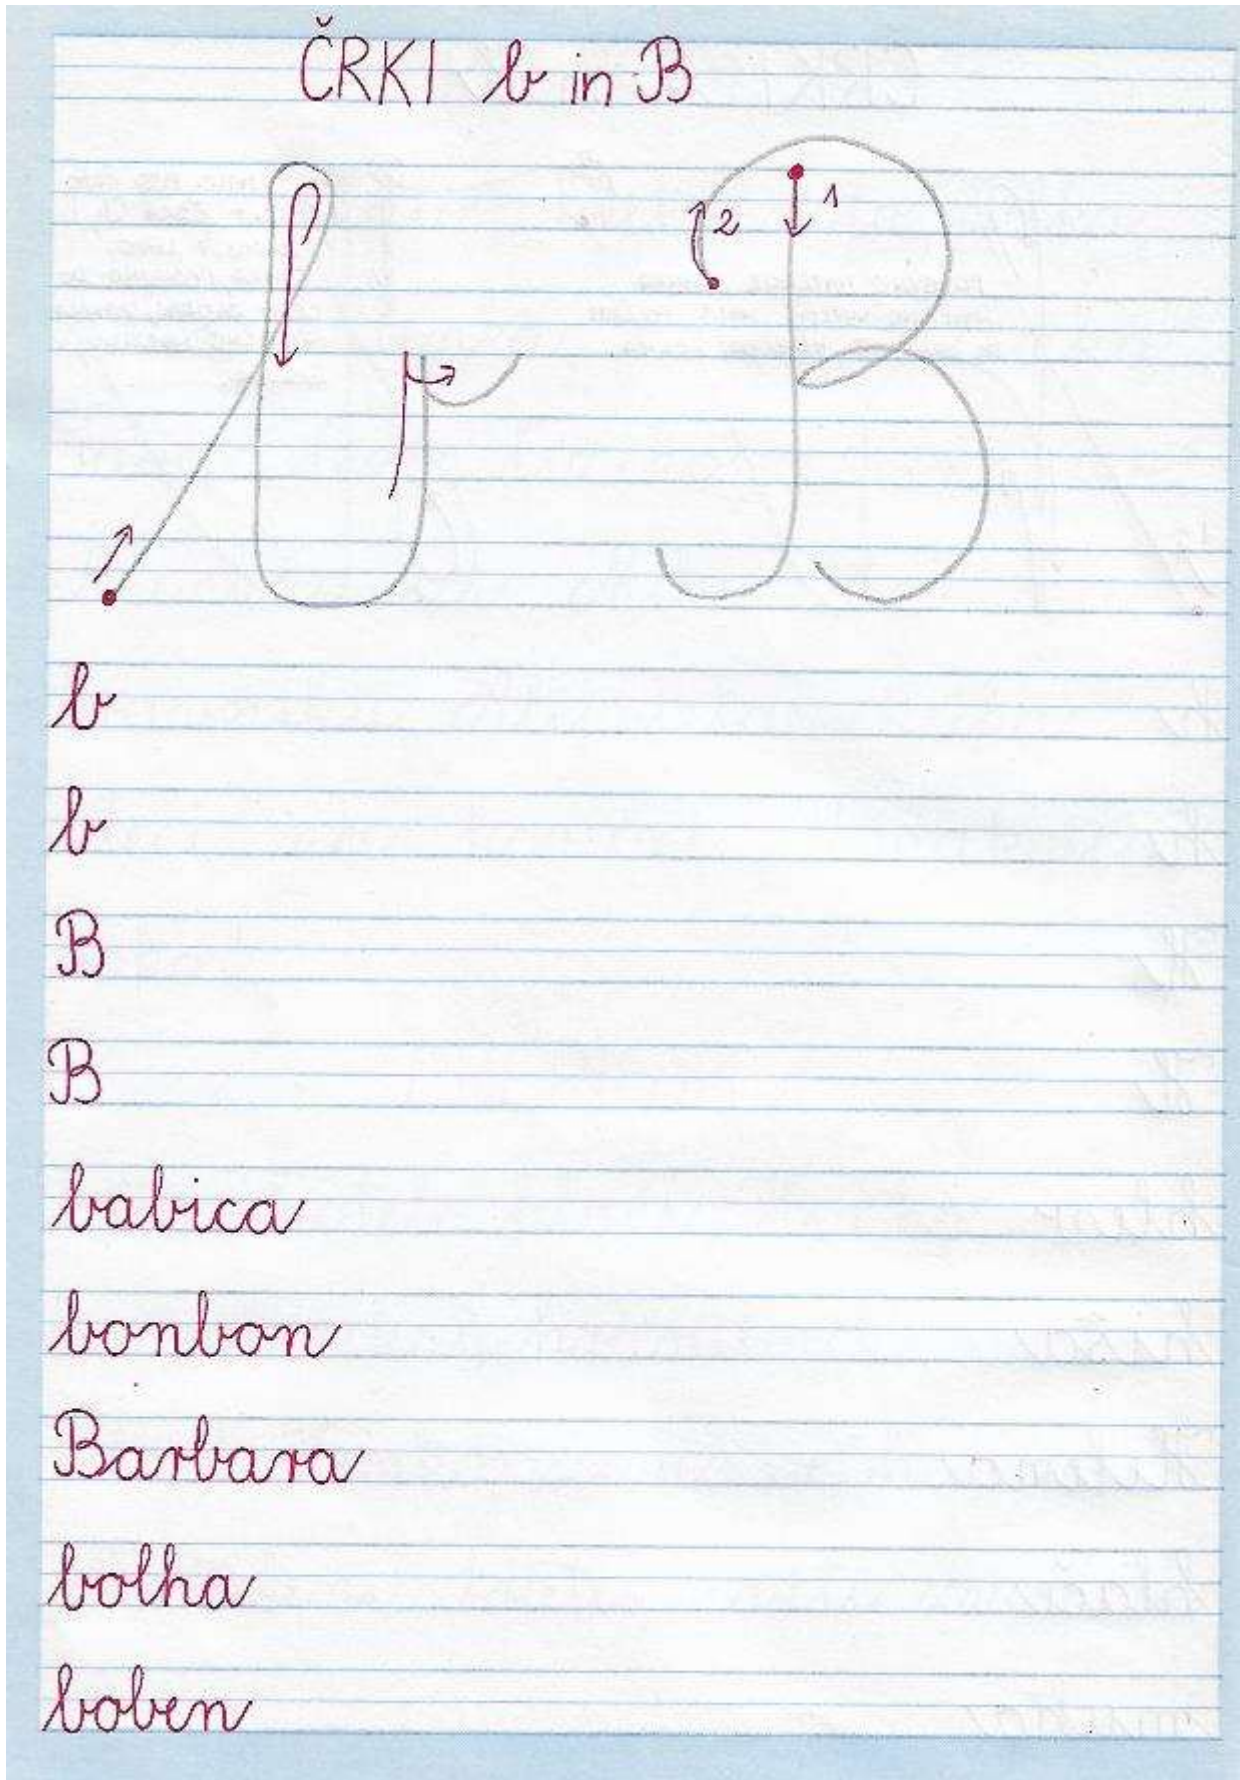 ČRKI b in B
2 1
b
b
B
B
babica
bonbon
Barbara
bolha
boben